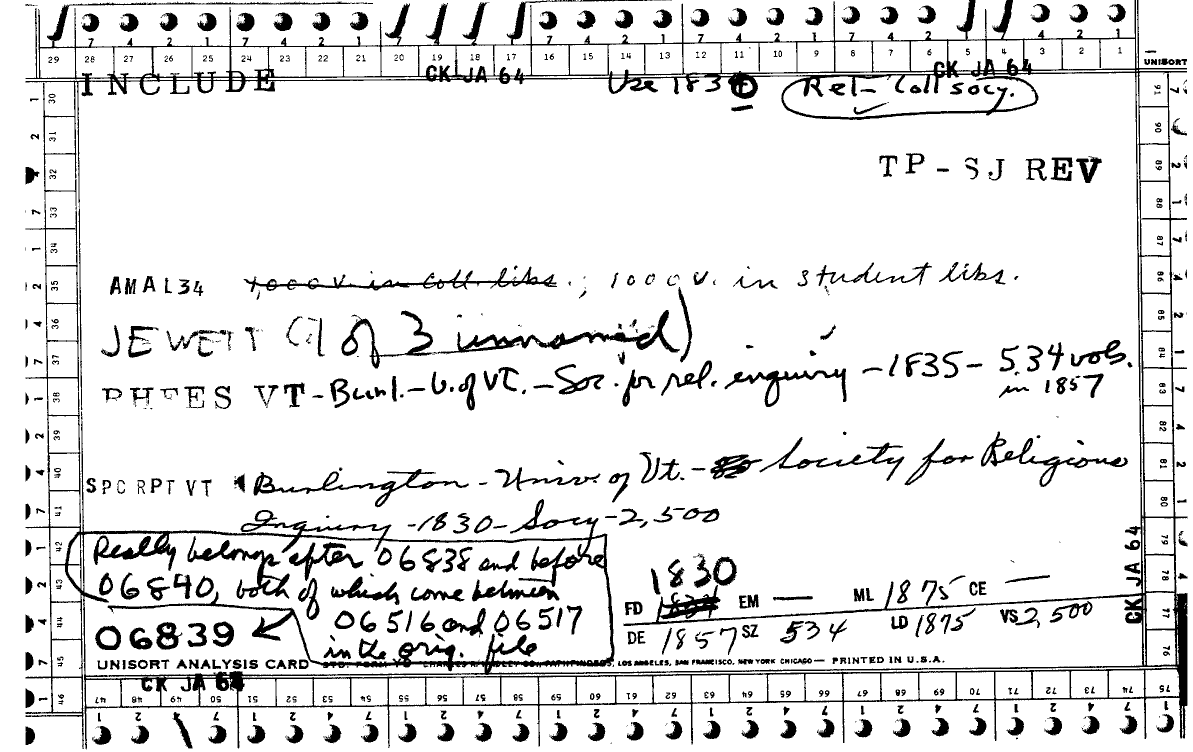 29 28 27 26 25 24 23 22 21 20 19 18 17 16 15 14 13 12 11 10 9 8 7 6 5 4 3 2 1
UNISORT
INCLUDE CK JA 64 Use 1834 CK JA 64
Rel- Coll socy.
TP-SJ REV
AMAL34 4,000 v. in coll. libs.; 1000 v. in student libs.
JEWETT (1 of 3 unnamed)
RHEES VT-Burl.-U. of VT.-Soc. for rel. enquiry -1835- 534 vols.
in 1857
SPC RPT VT Burlington - Univ. of Vt. - Society for Religious
Inquiry -1830- Socy-2,500
Really belongs after 06838 and before
06840, both of which come between
06516 and 06517
in the orig. file
06839
1830
FD 1834 EM — ML 1875 CE —
DE 1857 SZ 534 LD 1875 VS 2,500
CK JA 64
UNISORT ANALYSIS CARD LOS ANGELES, SAN FRANCISCO, NEW YORK CHICAGO— PRINTED IN U.S.A.
CK JA 64
47 48 49 50 51 52 53 54 55 56 57 58 59 60 61 62 63 64 65 66 67 68 69 70 71 72 73 74 75